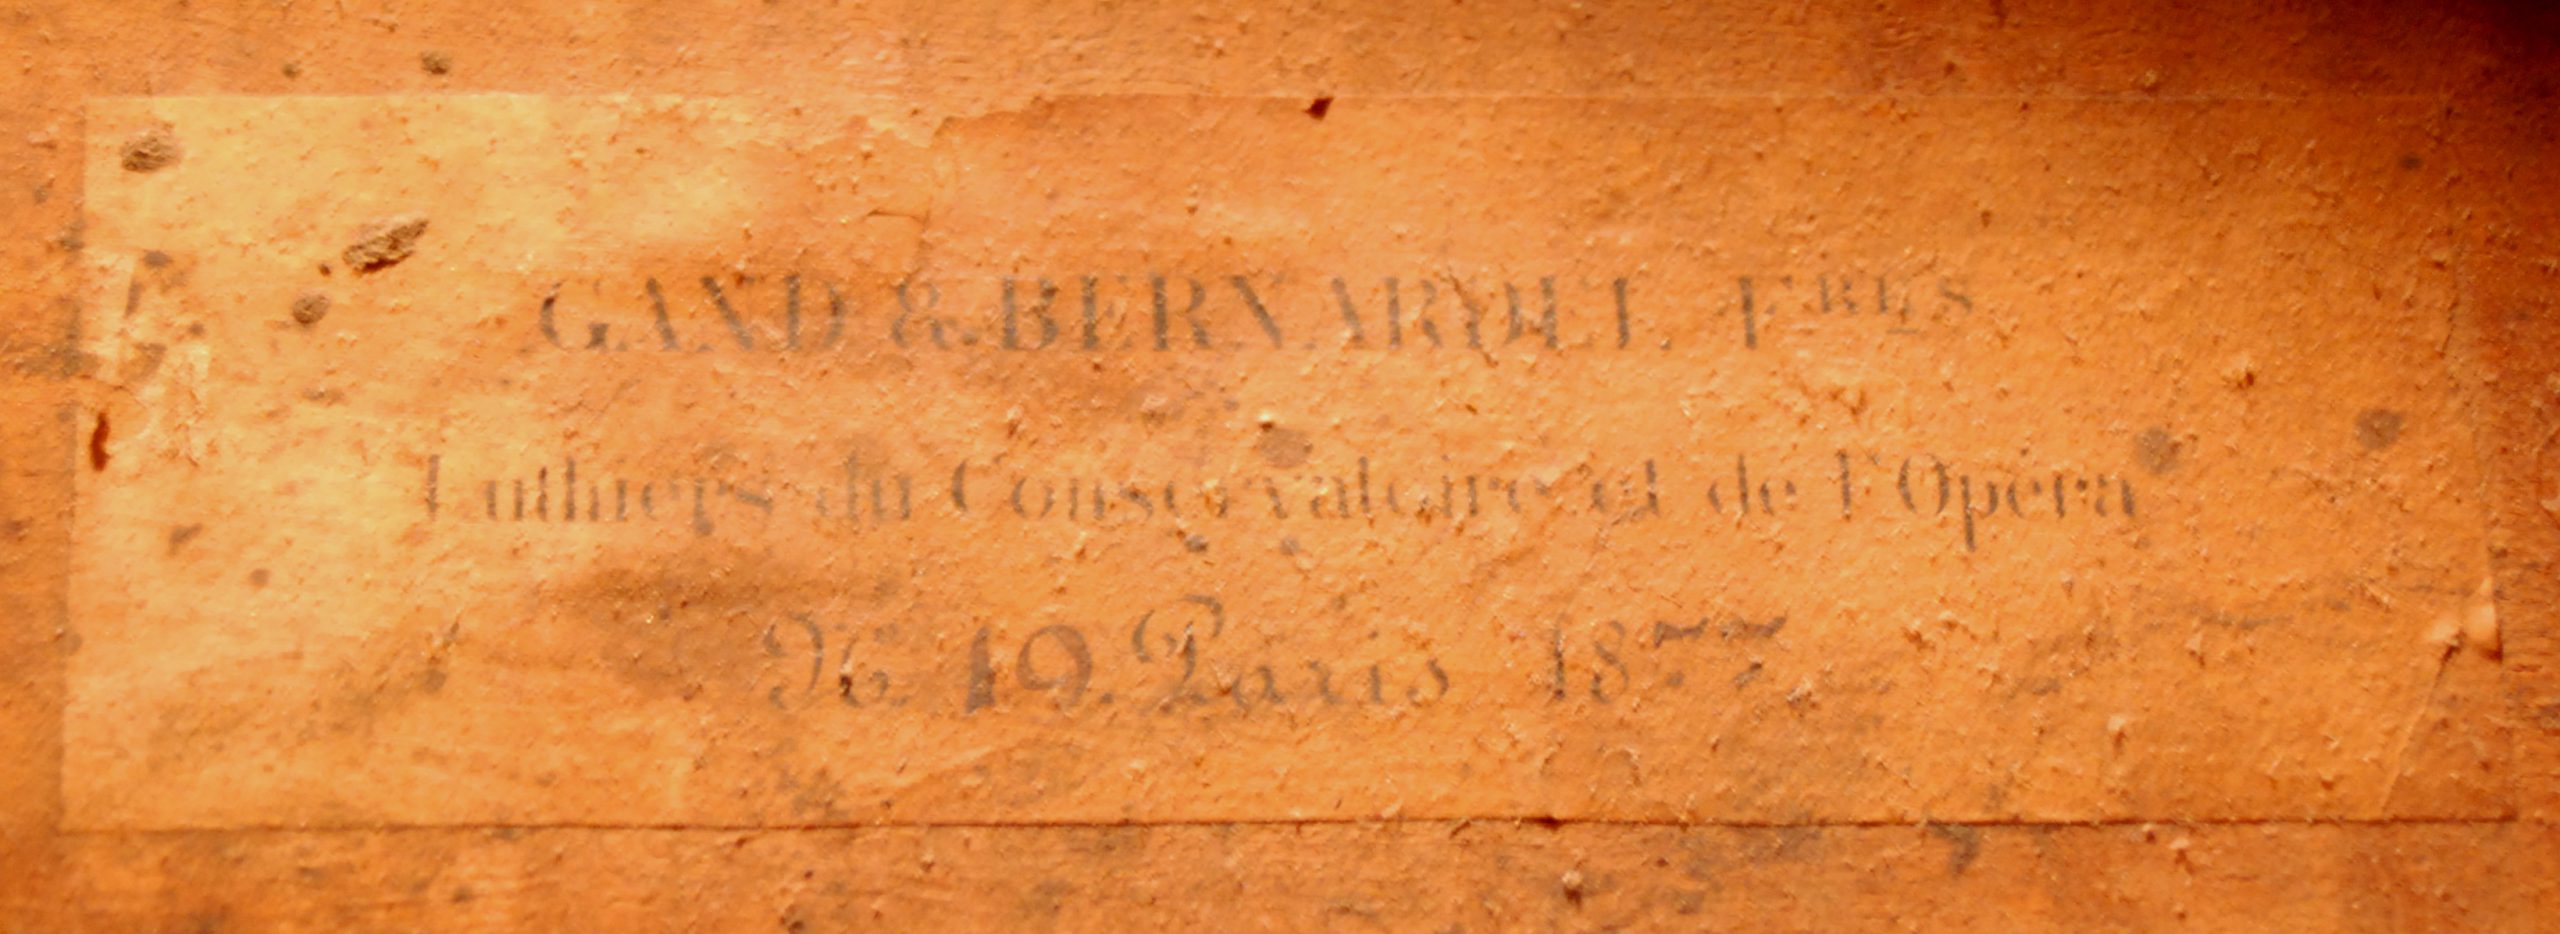 GAND & BERNARDEL, FRES
Luthiers du Conservatoire et de l'Opéra
No. 19. Paris 1877